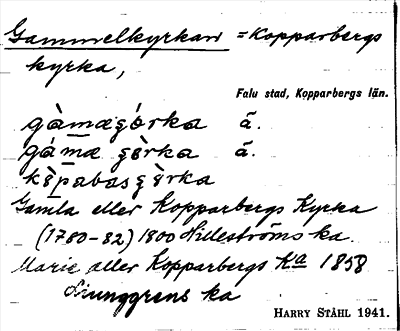 Gammelkyrkan = Kopparbergs
kyrka,
Falu stad, Kopparbergs län.
gàmæʂórka á.
gámæ ʂòrka á.
kòpabasʂòrka
Gamla eller Kopparbergs Kyrka
(1780-82) 1800 Hilleströms ka.
Marie eller Kopparbergs Ka 1858
Liunggrens ka
HARRY STÅHL 1941.